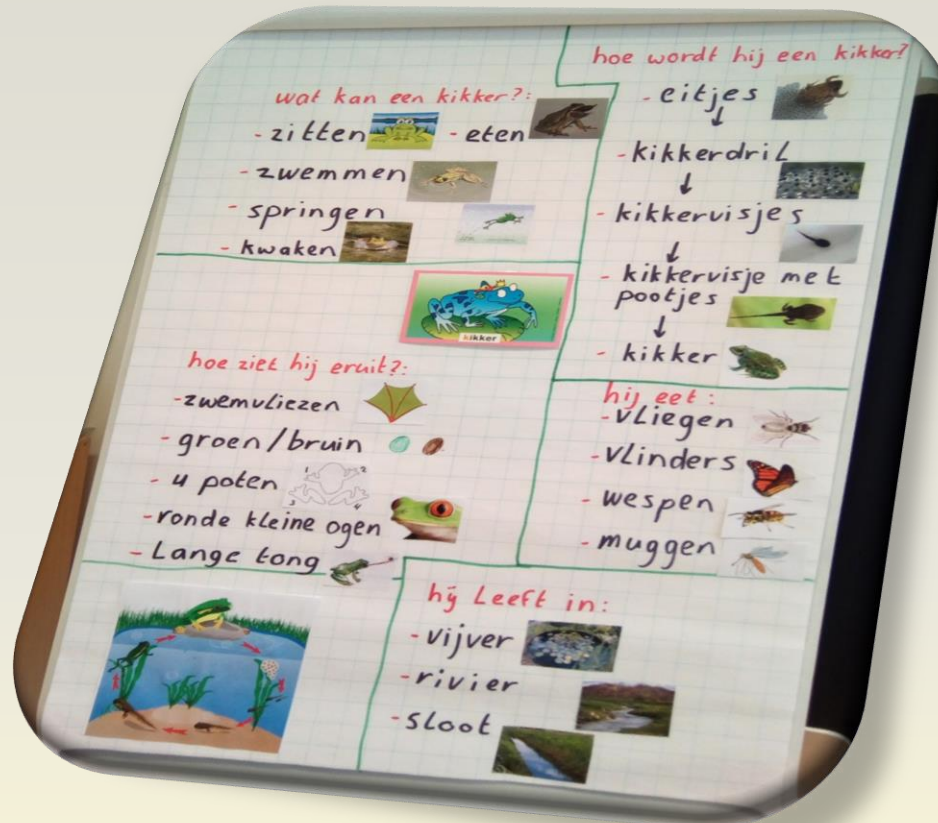 wat kan een kikker?:
- zitten - eten
- zwemmen
- springen
- kwaken
kikker
hoe ziet hij eruit?:
- zwemvliezen
- groen/bruin
- 4 poten
1 2
3 4
- ronde kleine ogen
- Lange tong
hoe wordt hij een kikker?
- eitjes
- kikkerdril
- kikkervisjes
- kikkervisje met
pootjes
- kikker
hij eet:
- vliegen
- vlinders
- wespen
- muggen
hij Leeft in:
- vijver
- rivier
- sloot